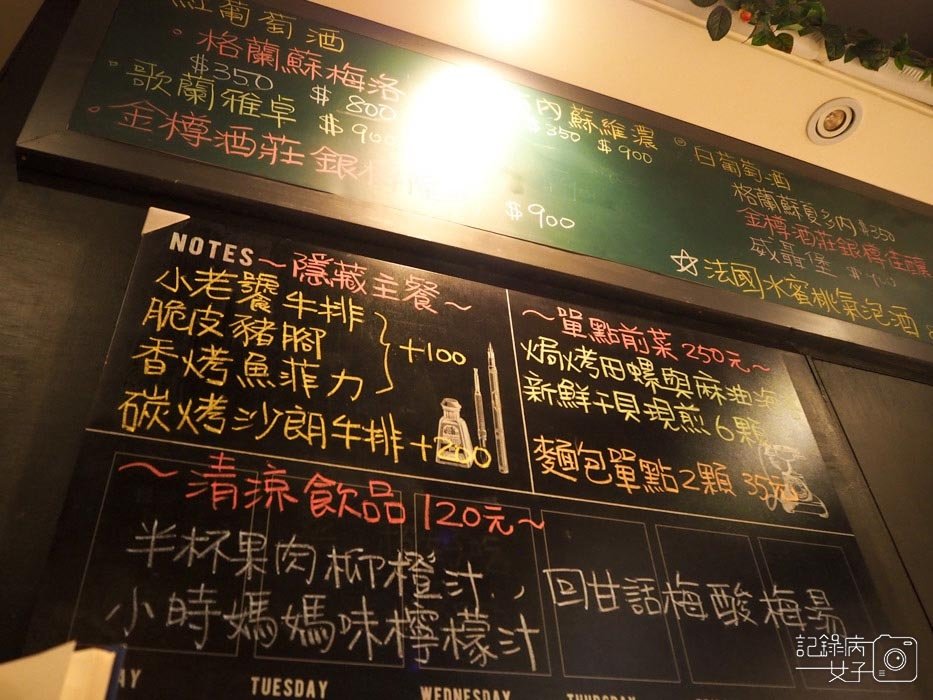 紅葡萄酒
格蘭蘇梅洛
$350 $800
歌蘭雅卓 $900
金樽酒莊 銀
內 蘇維濃
$350 $900
$900
白葡萄酒
格蘭蘇夏多內 $350
金樽酒莊銀樽佳釀
威聶堡
☆法國水蜜桃氣泡酒
NOTES ~隱藏主餐~
小老饕牛排
脆皮豬腳
香烤魚菲力
+100
碳烤沙朗牛排 +200
~單點前菜 250元~
焗烤田螺與麻油
新鮮干貝現煎6顆
麵包單點2顆 35元
~清涼飲品 120元~
半杯果肉柳橙汁
小時媽媽味檸檬汁
回甘話梅酸梅湯
AY TUESDAY WEDNESDAY THURSDAY
記錄病女子